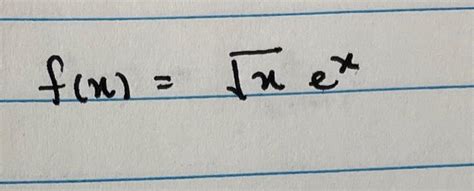 f(x) = √x e^x